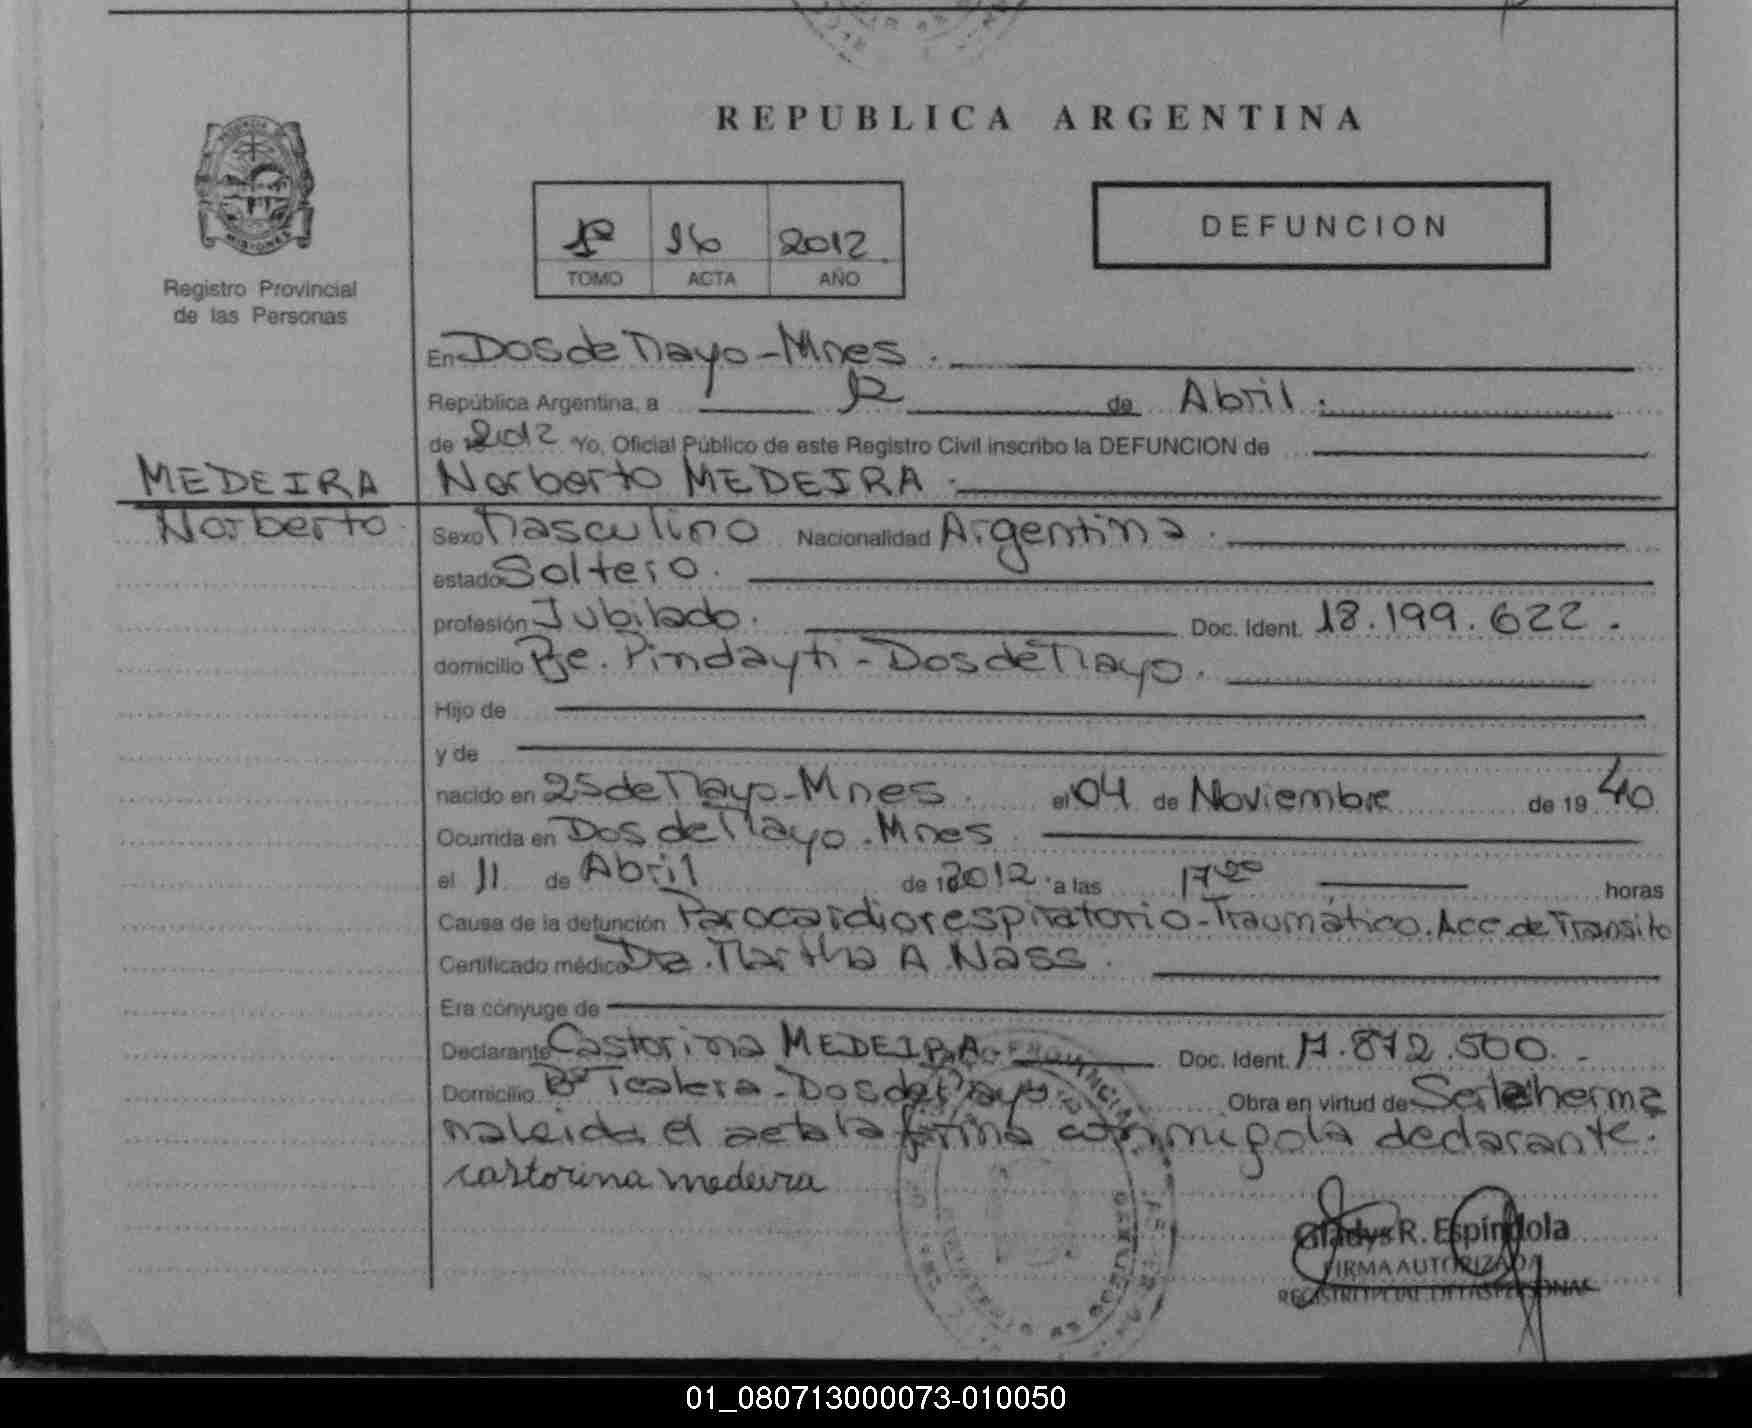 REPUBLICA ARGENTINA
1º 16 2012
TOMO ACTA AÑO
DEFUNCION
MISIONES
Registro Provincial
de las Personas
En Dos de Mayo - Mnes.
República Argentina, a 12 de Abril.
de 2012 Yo, Oficial Público de este Registro Civil inscribo la DEFUNCION de
MEDEIRA Norberto MEDEIRA.
Norberto
Sexo Masculino Nacionalidad Argentina.
estado Soltero.
profesión Jubilado. Doc. Ident. 18.199.622.
domicilio Pje. Pindayti - Dos de Mayo.
Hijo de
y de
nacido en 25 de Mayo - Mnes. el 04 de Noviembre de 19 40
Ocurrida en Dos de Mayo. Mnes
el 11 de Abril de 2012 a las 17 00 horas
Causa de la defunción Parocardiorespiratorio - Traumático. Acc. de Transito
Certificado médico Dra. Martha A. Nass.
Era cónyuge de
Declarante Castorina MEDEIRA Doc. Ident. 17.872.500.
Domicilio Bº Ticalera - Dos de Mayo Obra en virtud de Ser la herma
na leida el acta la firma conmigo la declarante.
castorina medeira
Gladys R. Espíndola
FIRMA AUTORIZADA
REGISTRO PCIAL. DE LAS PERSONAS
01_080713000073-010050